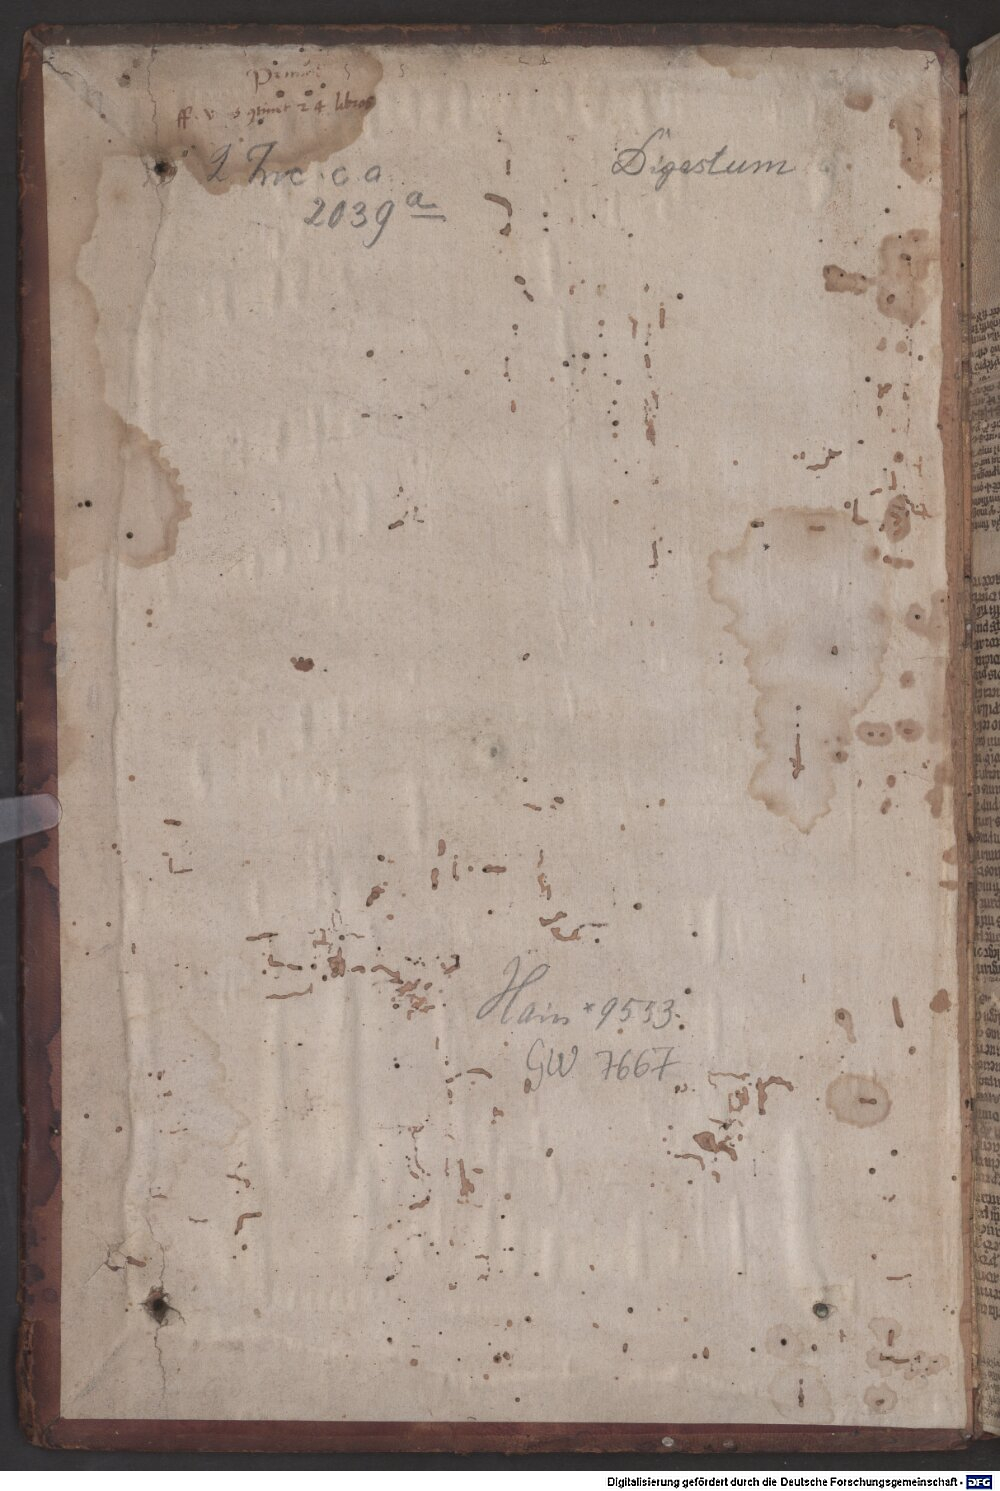 2 Inc. c. a.
2039 a
Digestum
Hain *9553.
GW 7667
24 libros
Digitalisierung gefördert durch die Deutsche Forschungsgemeinschaft - DFG